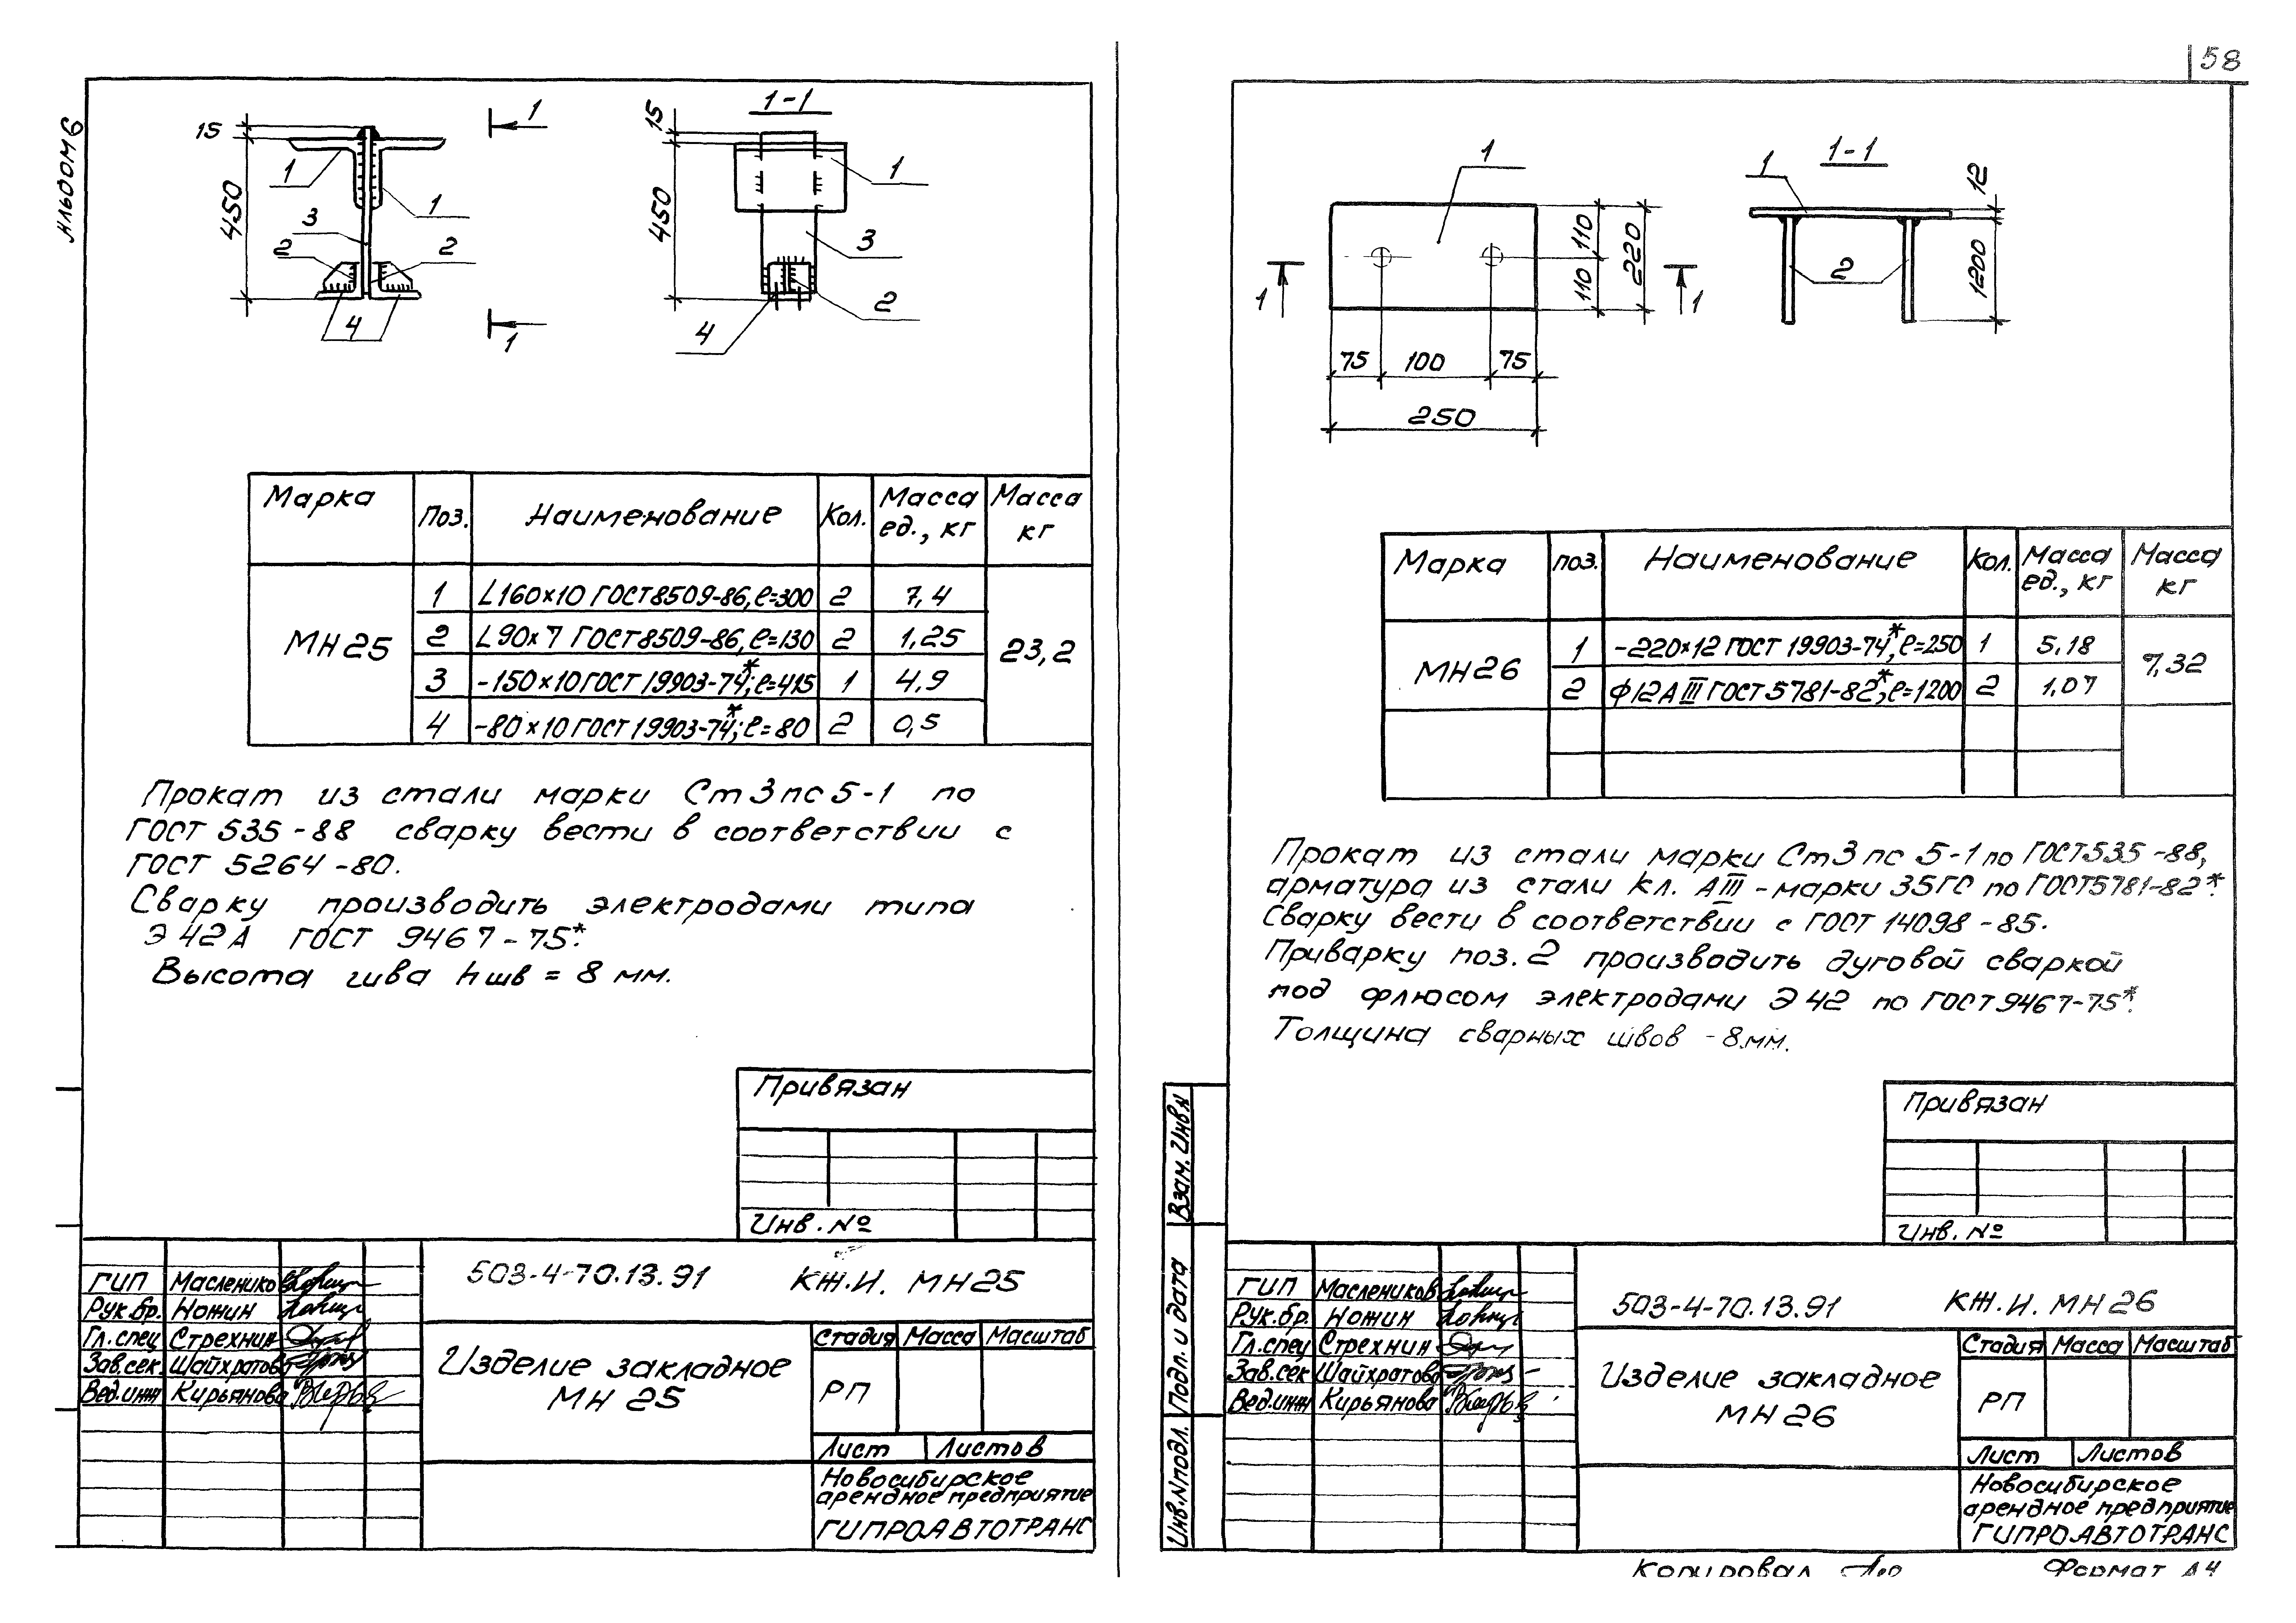 58
Альбом 6
1
1-1
15
450
1
1
3
2
2
4
1
15
450
1
3
2
4
Марка
Поз.
Наименование
Кол.
Масса ед., кг
Масса кг
МН25
1
L160×10 ГОСТ 8509-86, ℓ=300
2
7,4
23,2
2
L90×7 ГОСТ 8509-86, ℓ=130
2
1,25
3
-150×10 ГОСТ 19903-74*; ℓ=415
1
4,9
4
-80×10 ГОСТ 19903-74*; ℓ=80
2
0,5
Прокат из стали марки Ст3пс5-1 по
ГОСТ 535-88 сварку вести в соответствии с
ГОСТ 5264-80.
Сварку производить электродами типа
Э42А ГОСТ 9467-75*.
Высота шва hшв = 8 мм.
Привязан
Инв. №
503-4-70.13.91 КЖ.И. МН25
ГИП Маслеников
Рук.бр. Ножин
Гл.спец Стрехнин
Зав.сек. Шайхратова
Вед.инж Кирьянова
Изделие закладное
МН 25
Стадия Масса Масштаб
РП
Лист Листов
Новосибирское
арендное предприятие
ГИПРОАВТОТРАНС
1
1-1
1
12
1200
2
110
110
220
1
1
75
100
75
250
Марка
поз.
Наименование
Кол.
Масса ед., кг
Масса кг
МН26
1
-220×12 ГОСТ 19903-74*, ℓ=250
1
5,18
7,32
2
ф12АIII ГОСТ 5781-82*, ℓ=1200
2
1,07
Прокат из стали марки Ст3пс 5-1 по ГОСТ 535-88,
арматура из стали кл. АIII - марки 35ГС по ГОСТ 5781-82*.
Сварку вести в соответствии с ГОСТ 14098-85.
Приварку поз. 2 производить дуговой сваркой
под флюсом электродами Э42 по ГОСТ 9467-75*.
Толщина сварных швов - 8мм.
Привязан
Инв. №
Взам. Инв.№
Подп. и дата
Инв.№подл.
503-4-70.13.91 КЖ.И. МН26
ГИП Маслеников
Рук.бр. Ножин
Гл.спец Стрехнин
Зав.сек Шайхратова
Вед.инж Кирьянова
Изделие закладное
МН26
Стадия Масса Масштаб
РП
Лист Листов
Новосибирское
арендное предприятие
ГИПРОАВТОТРАНС
Копировал
Формат А4